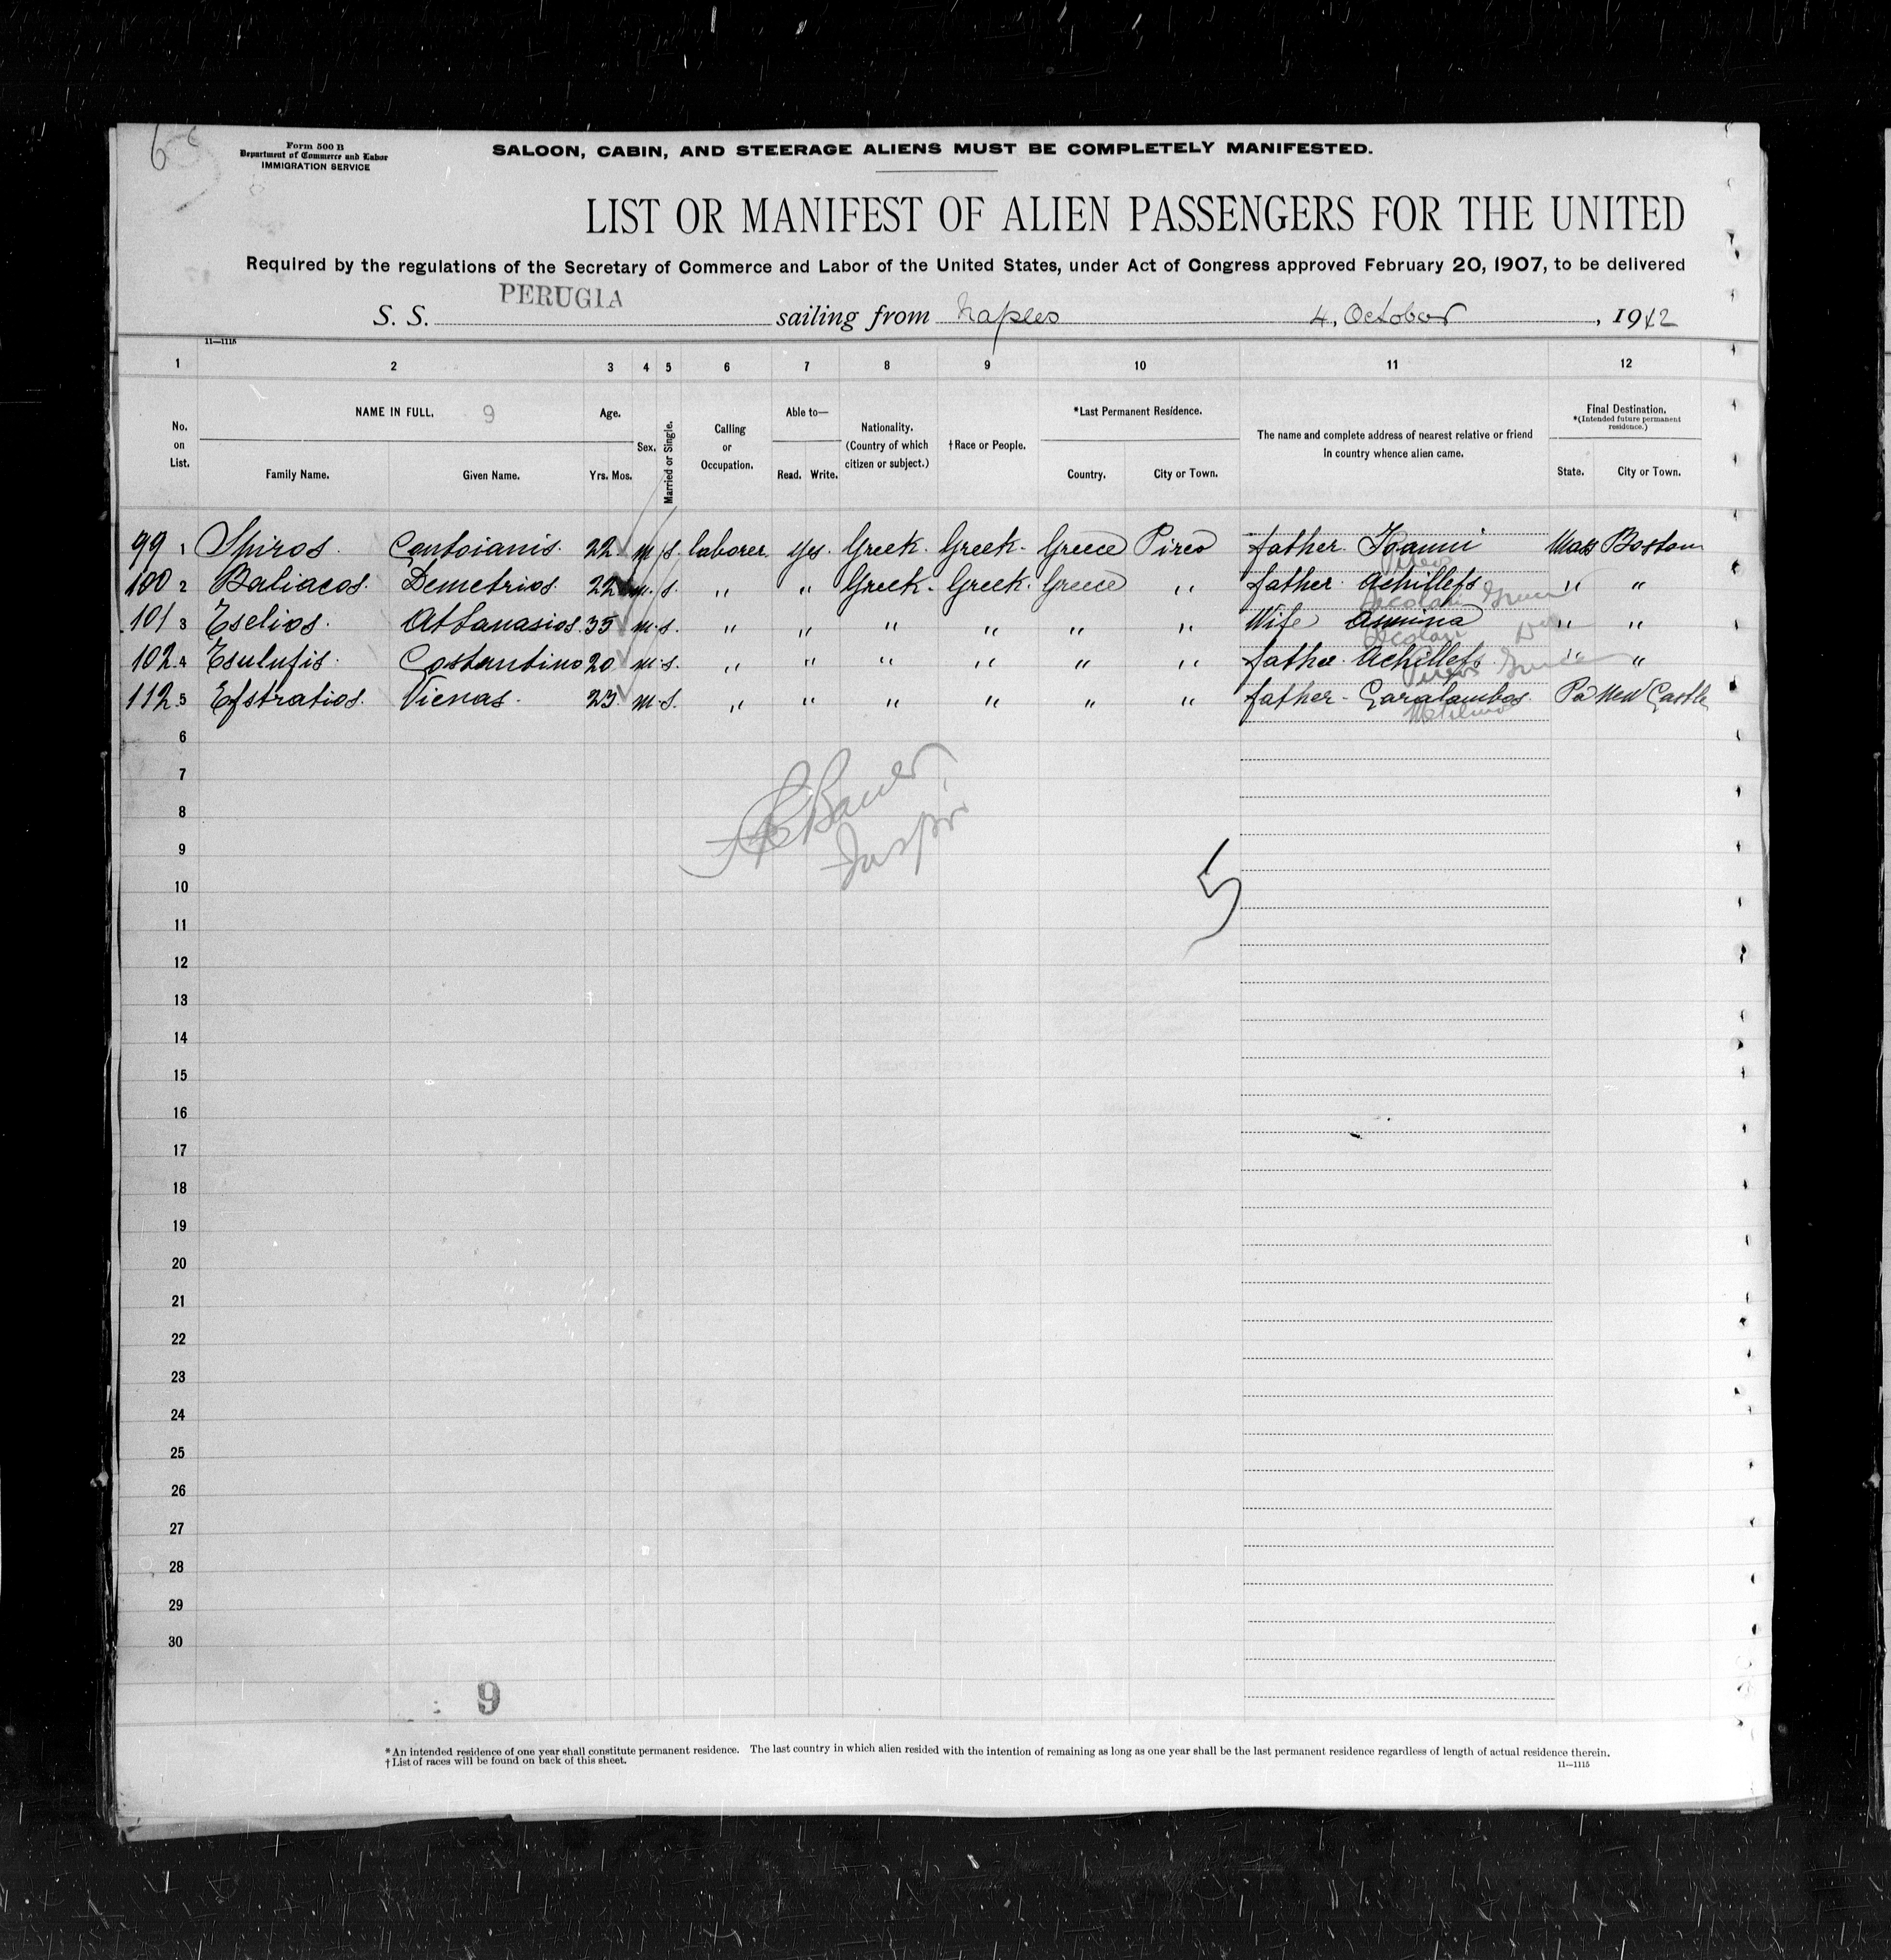 6
Form 500 B
Department of Commerce and Labor
IMMIGRATION SERVICE
SALOON, CABIN, AND STEERAGE ALIENS MUST BE COMPLETELY MANIFESTED.
LIST OR MANIFEST OF ALIEN PASSENGERS FOR THE UNITED
Required by the regulations of the Secretary of Commerce and Labor of the United States, under Act of Congress approved February 20, 1907, to be delivered
S. S. PERUGIA sailing from Naples 4, October, 1912
11—1115
1 2 3 4 5 6 7 8 9 10 11 12
No. on List.
NAME IN FULL. 9
Family Name. Given Name.
Age.
Yrs. Mos.
Sex.
Married or Single.
Calling or Occupation.
Able to—
Read. Write.
Nationality.
(Country of which citizen or subject.)
†Race or People.
*Last Permanent Residence.
Country. City or Town.
The name and complete address of nearest relative or friend
in country whence alien came.
Final Destination.
*(Intended future permanent residence.)
State. City or Town.
99 1 Spiros. Contoianis. 22 m s. laborer yes. Greek. Greek. Greece Pireo father Joanni Mass Boston
100 2 Baliacos. Demetrios. 22 m. s. " " Greek. Greek. Greece " father Achillefs " "
101 3 Eselios. Athanasios. 35 m. s. " " " " " " Wife Annina " "
102 4 Esulufis. Costantino 20 m. s. " " " " " " father Achillefs. "
112 5 Efstratios. Vienas. 23 m. s. " " " " " " father Garalambos. Pa New Castle
6
7
8
Bauer
Insp.
9
5
10
11
12
13
14
15
16
17
18
19
20
21
22
23
24
25
26
27
28
29
30
9
*An intended residence of one year shall constitute permanent residence. The last country in which alien resided with the intention of remaining as long as one year shall be the last permanent residence regardless of length of actual residence therein.
†List of races will be found on back of this sheet.
11—1115